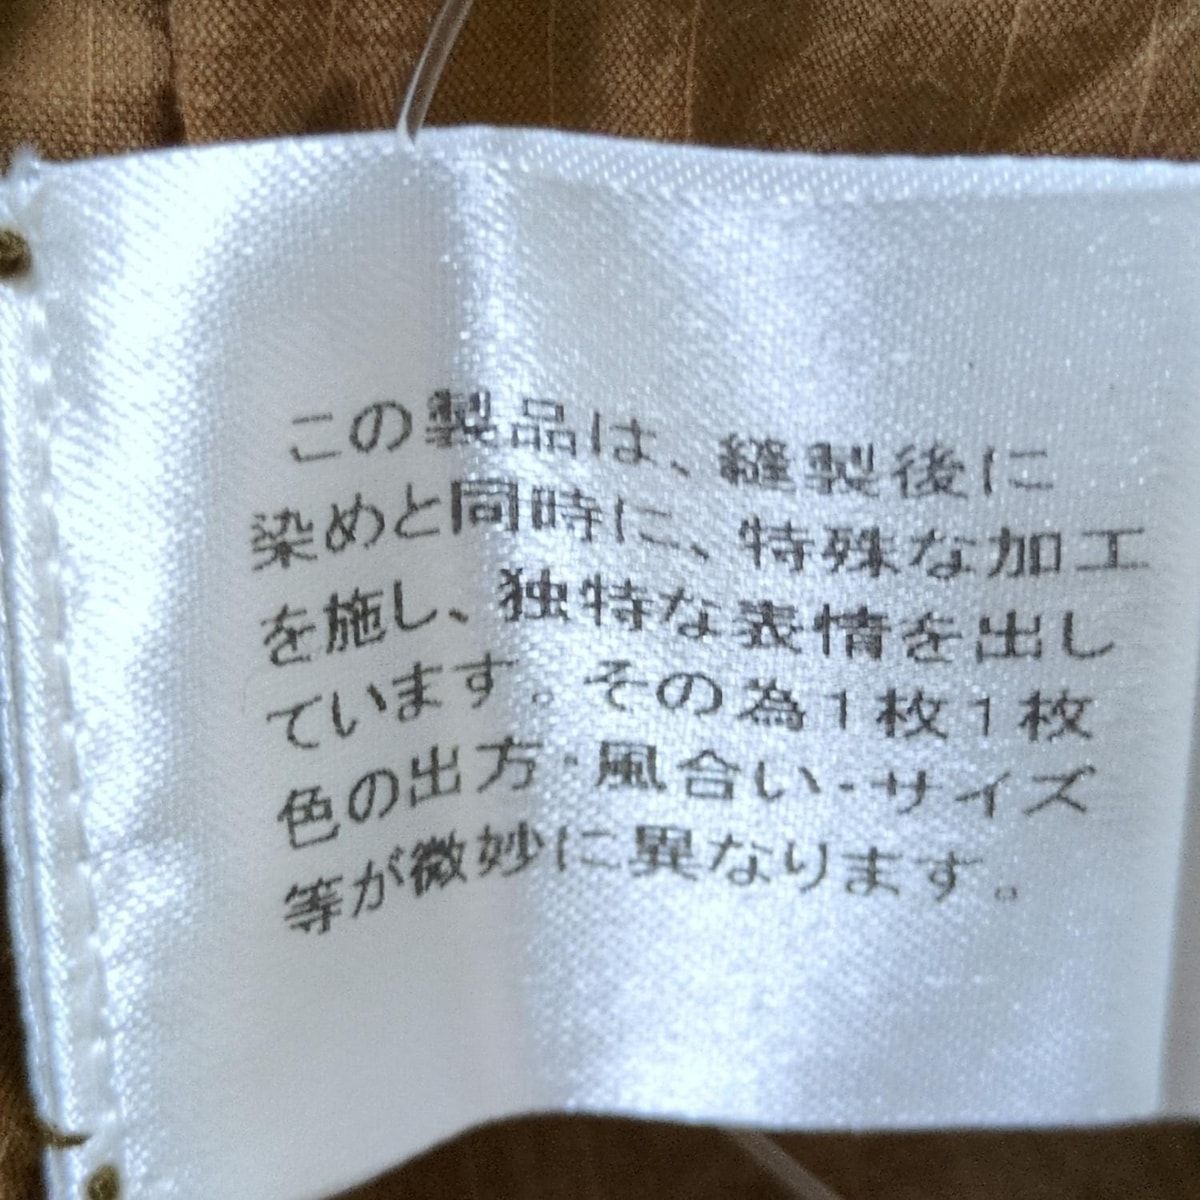 この製品は、縫製後に
染めと同時に、特殊な加工
を施し、独特な表情を出し
ています。その為1枚1枚
色の出方・風合い・サイズ
等が微妙に異なります。